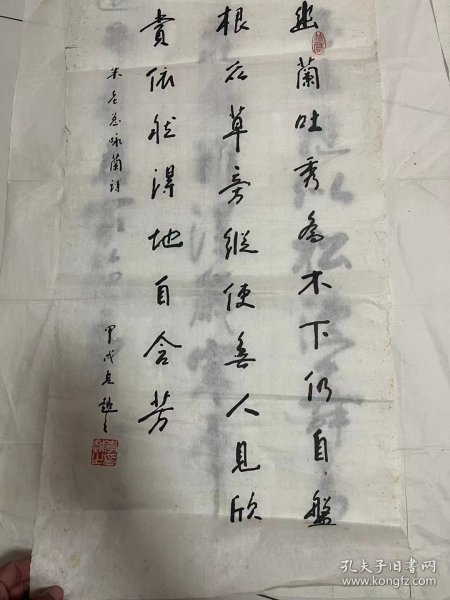 幽蘭吐秀喬木下仍自盤
根众草旁縱使無人見欣
賞依然得地自含芳
朱老总咏蘭詩
甲戌
孔夫子旧书网
www.kongfz.com